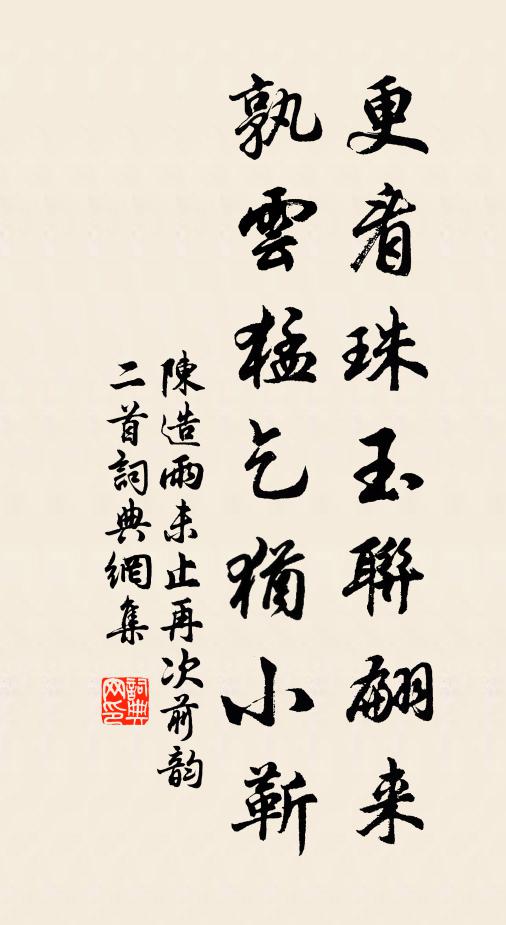 更看珠玉聯翩来
孰雲猛乞猶小靳
陳造雨未止再次前韵
二首詞典網集
詞典网印